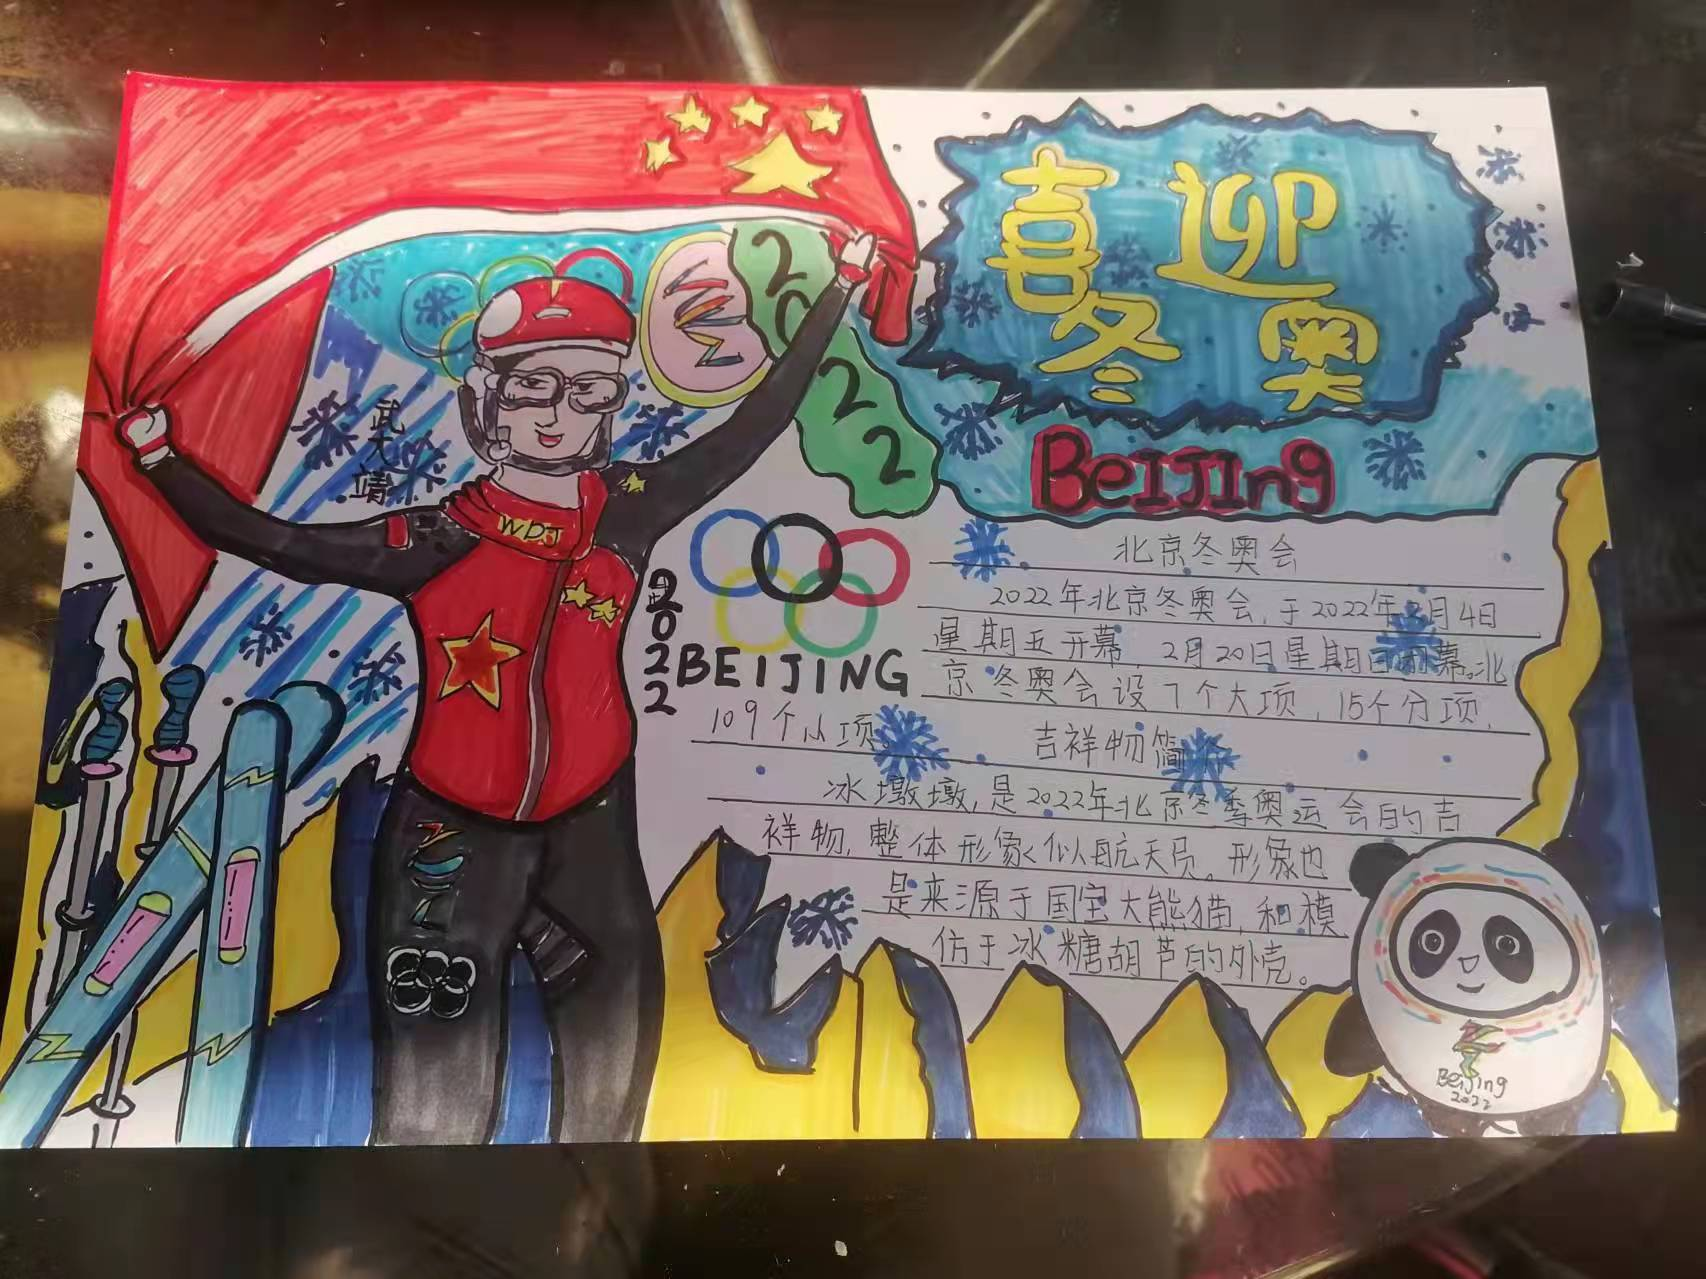 喜迎
冬奥
BeIJIng
2022
武大靖
WDJ
2022
BEIJING
北京冬奥会
2022年北京冬奥会,于2022年2月4日
星期五开幕,2月20日星期日闭幕。北
京冬奥会设7个大项,15个分项,
109个小项。
吉祥物简介
冰墩墩,是2022年北京冬季奥运会的吉
祥物,整体形象似航天员。形象也
是来源于国宝大熊猫,和模
仿于冰糖胡芦的外壳。
BeiJing
2022